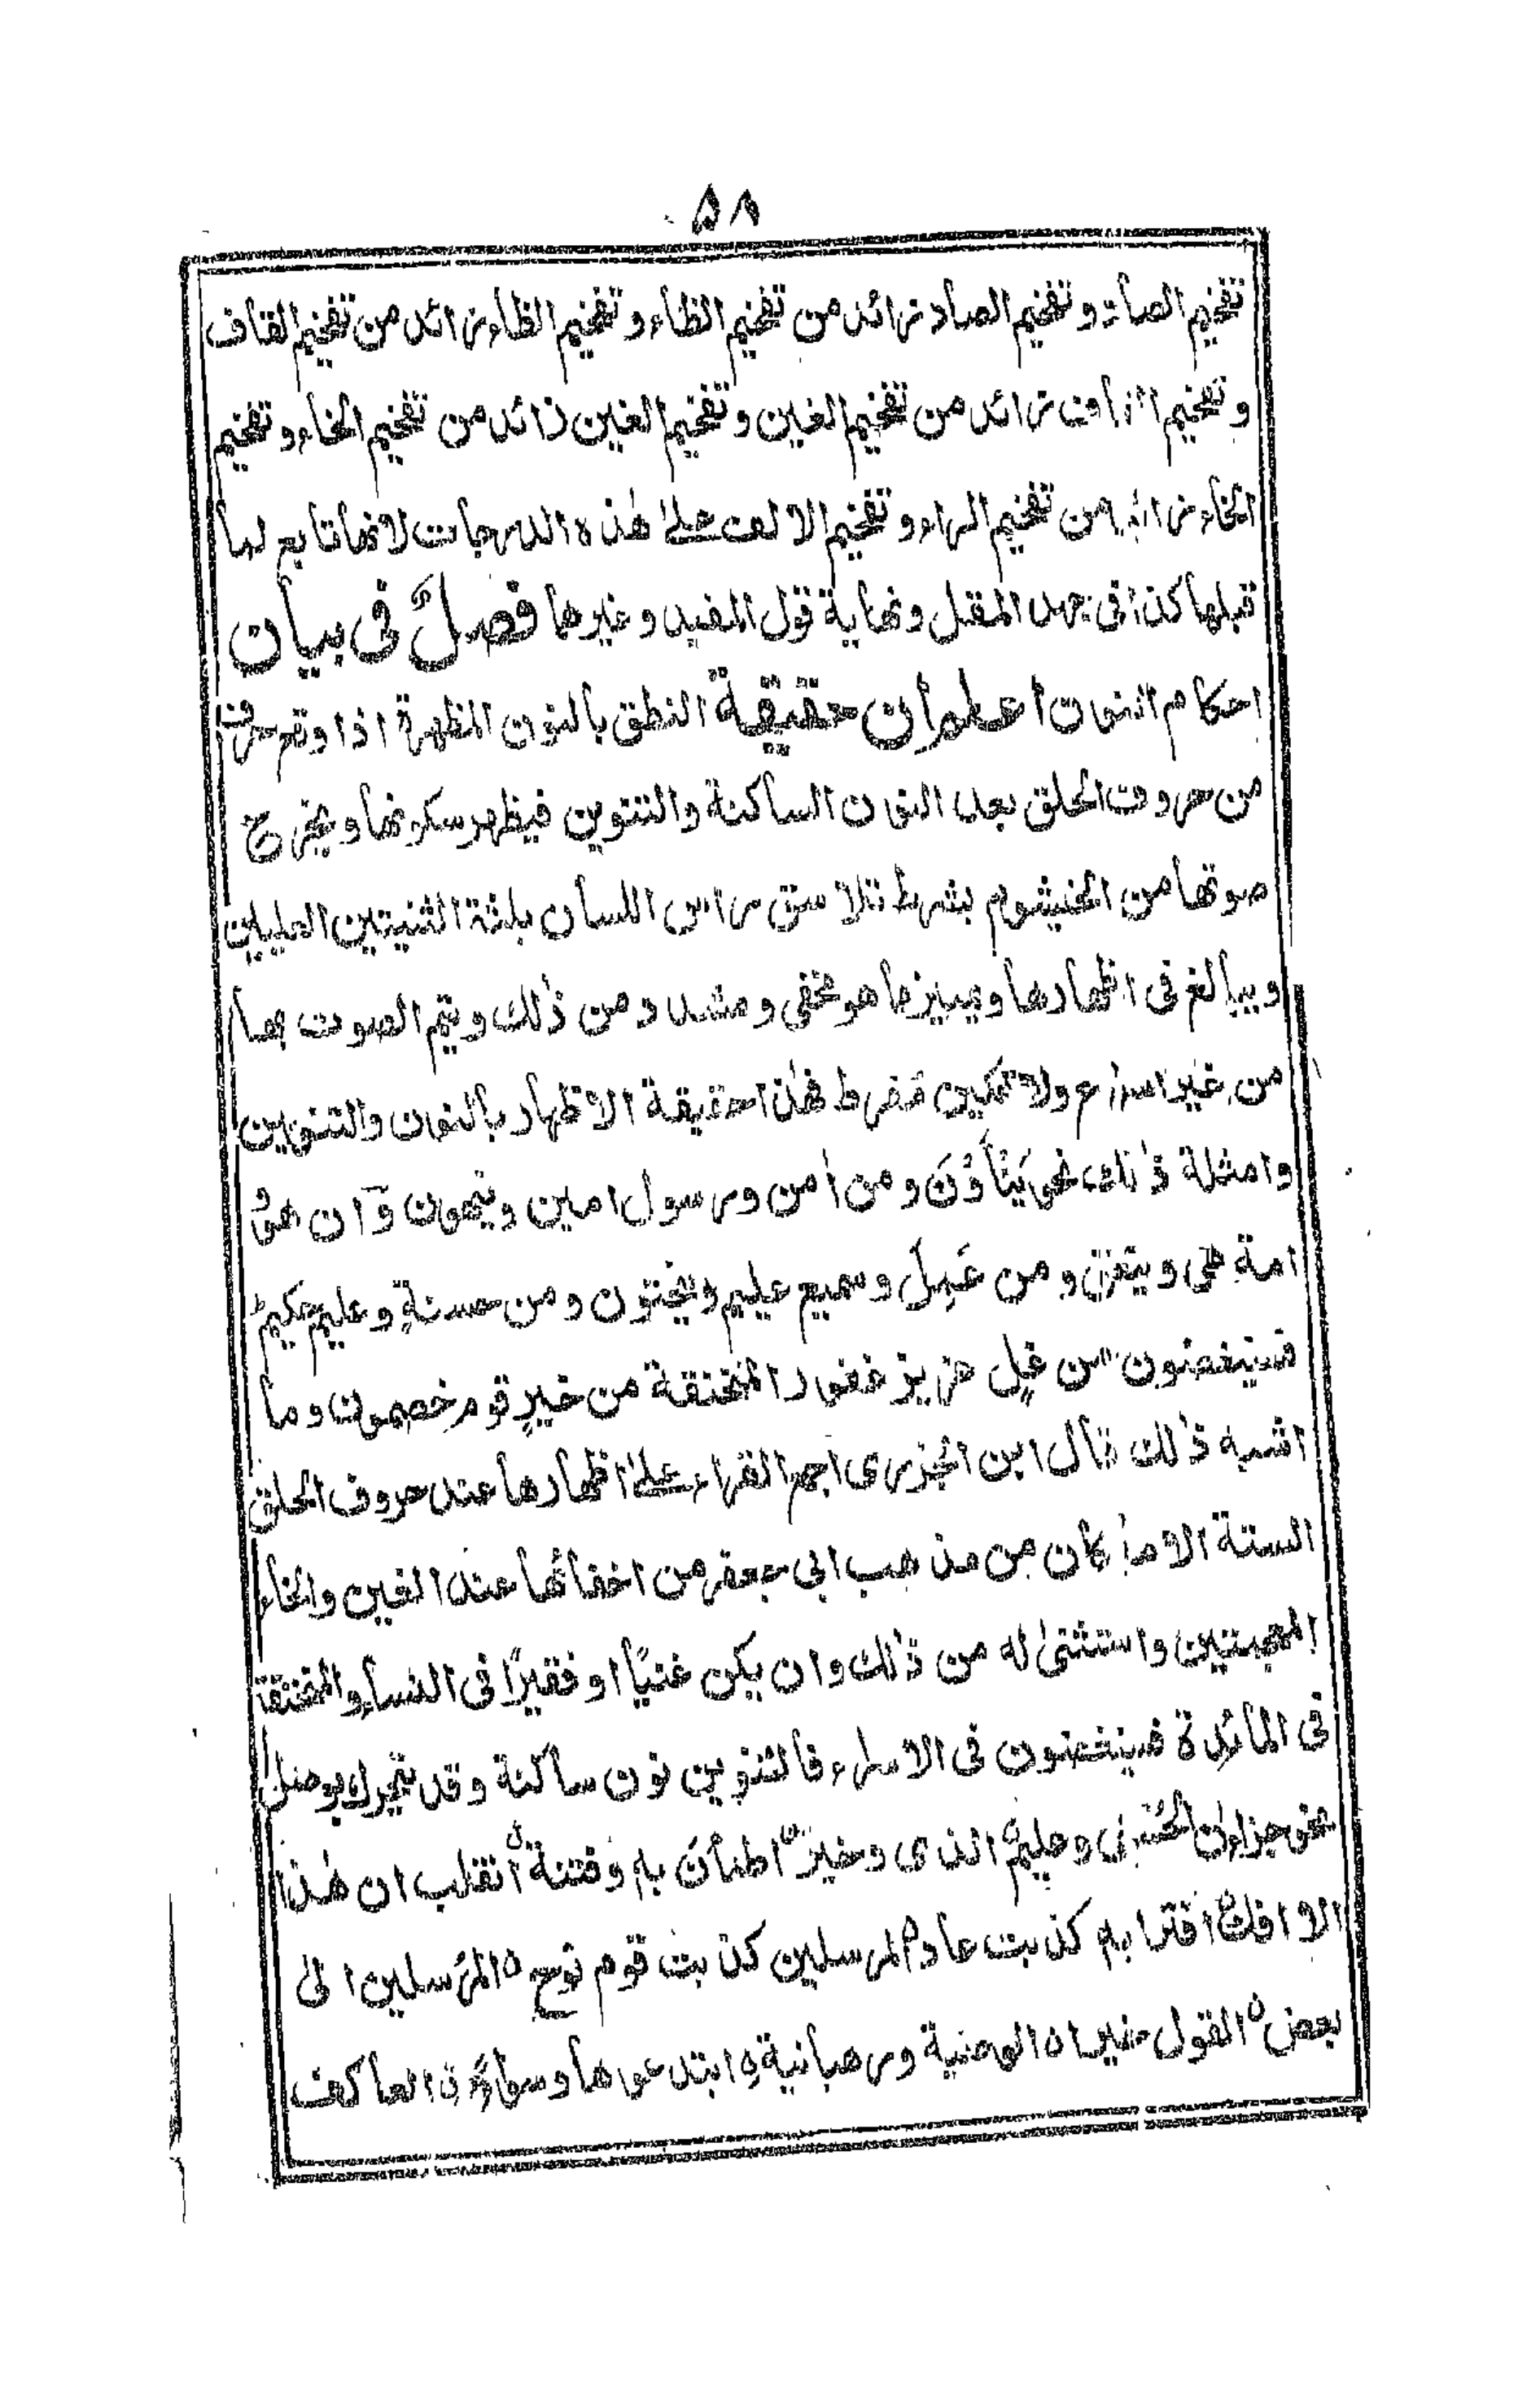 ٥٨
تفخيم الصاد وتفخيم الصاد زائد من تفخيم الظاء وتفخيم الظاء زائد من تفخيم القاف
وتفخيم القاف زائد من تفخيم الغين وتفخيم الغين زائد من تفخيم الخاء وتفخيم
الخاء زائد من تفخيم الراء وتفخيم الالف علىٰ هٰذه الدرجات لانها تابع لما
قبلها كذا فى جهد المقل ونهاية قول المفيد وغيرهما فصلٌ فى بيان
احكام النون اعلم ان حقيقة النطق بالنون المظهرة اذا وقع حرف
من حروف الحلق بعد النون الساكنة والتنوين فيظهر سكونها ويخرج
صوتها من الخيشوم بشرط تلاسق راس اللسان بلثة الثنيتين العليين
ويبالغ فى اظهارها ويميز ما هو مخفى ومشدد من ذٰلك ويتم الصوت بها
من غير ولا تمكين مفرط فهٰذا حقيقة الاظهار بالنون والتنوين
وامثلة ذٰلك نحو يَنْأَوْنَ ومن اٰمن ورسول امين وينهون وٓان هو
امةٍ هى وينعق ومن عَمِلَ وسميع عليم وينحتون ومن حسنةٍ وعليم حكيمٌ
فسينغضون من غِلٍ عزيز غفور المنخنقة من خيرٍ قوم خصمون وما
اشبه ذٰلك قال ابن الجزرى اجمع القراء علىٰ اظهارها عند حروف الحلق
الستة الا ما كان من مذهب ابى جعفر من اخفائها عند الغين والخاء
المعجمتين واستثنىٰ له من ذٰلك وان يكن غنيًا او فقيرًا فى النساء والمنخنقة
فى المائدة فسينغضون فى الاسراء فالتنوين نون ساكنة وقد يتحرك بوصل
نحو جزاءً الحسنى الذى وخيرٌ اطمأن بهٖ وفتنةٌ انقلب ان هٰذا
الا افكٌ افتراىه كذبت عاد المرسلين كذبت قوم نوح المرسلين الىٰ
بعض القول خيرا الوصية ورهبانية ابتدعوها وسواءً العاكف